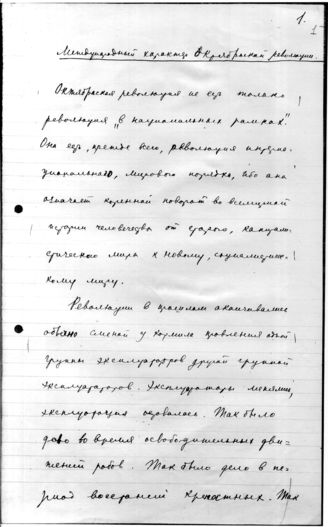 1.
1
Международный характер Октябрьской революции.
Октябрьская революция не есть только
революция „в национальных рамках“.
Она есть, прежде всего, революция интерна-
ционального, мирового порядка, ибо она
означает коренной поворот во всемирной
истории человечества от старого, капитали-
стического мира к новому, социалистичес-
кому миру.
Революции в прошлом оканчивались
обычно сменой у кормила правления одной
группы эксплуататоров другой группой
эксплуататоров. Эксплуататоры менялись,
эксплуатация оставалась. Так было
дело во время освободительных дви-
жений рабов. Так было дело в пе-
риод восстаний крепостных. Так